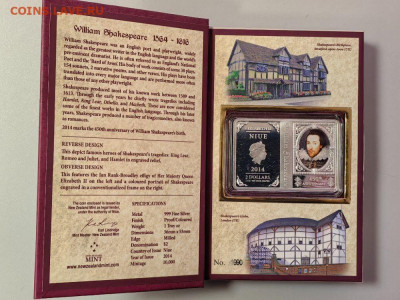 COINS.LAVE.RU
William Shakespeare 1564 - 1616
William Shakespeare was an English poet and playwright, widely
regarded as the greatest writer in the English language and the world's
pre-eminent dramatist. He is often referred to as England's National
Poet and the 'Bard of Avon'. His body of work consists of some 38 plays,
154 sonnets, 2 narrative poems, and other verses. His plays have been
translated into every major language and are performed more often
than those of any other playwright.
Shakespeare produced most of his known work between 1589 and
1613. Through the early years he chiefly wrote tragedies including
Hamlet, King Lear, Othello, and Macbeth. These are now considered
some of the finest works in the English language. Through the later
years, Shakespeare produced a number of tragicomedies, also known
as romances.
2014 marks the 450th anniversary of William Shakespeare's birth.
REVERSE DESIGN
This depict famous heroes of Shakespeare's tragedies: King Lear,
Romeo and Juliet, and Hamlet in engraved relief.
OBVERSE DESIGN
This features the Ian Rank-Broadley effigy of Her Majesty Queen
Elizabeth II on the left and a coloured portrait of Shakespeare
engraved in a conventionalized frame on the right.
The coin enclosed is issued by
New Zealand Mint as legal tender,
under the authority of Niue.
Mint Master New Zealand Mint
MINT
www.newzealandmint.com
SPECIFICATIONS
Metal .999 Fine Silver
Finish Proof/Coloured
Weight 1 Troy oz
Edge Milled
Denomination $2
Country of Issue Niue
Year of Issue 2014
Mintage 10,000
NIUE
2014
2 DOLLARS
No.